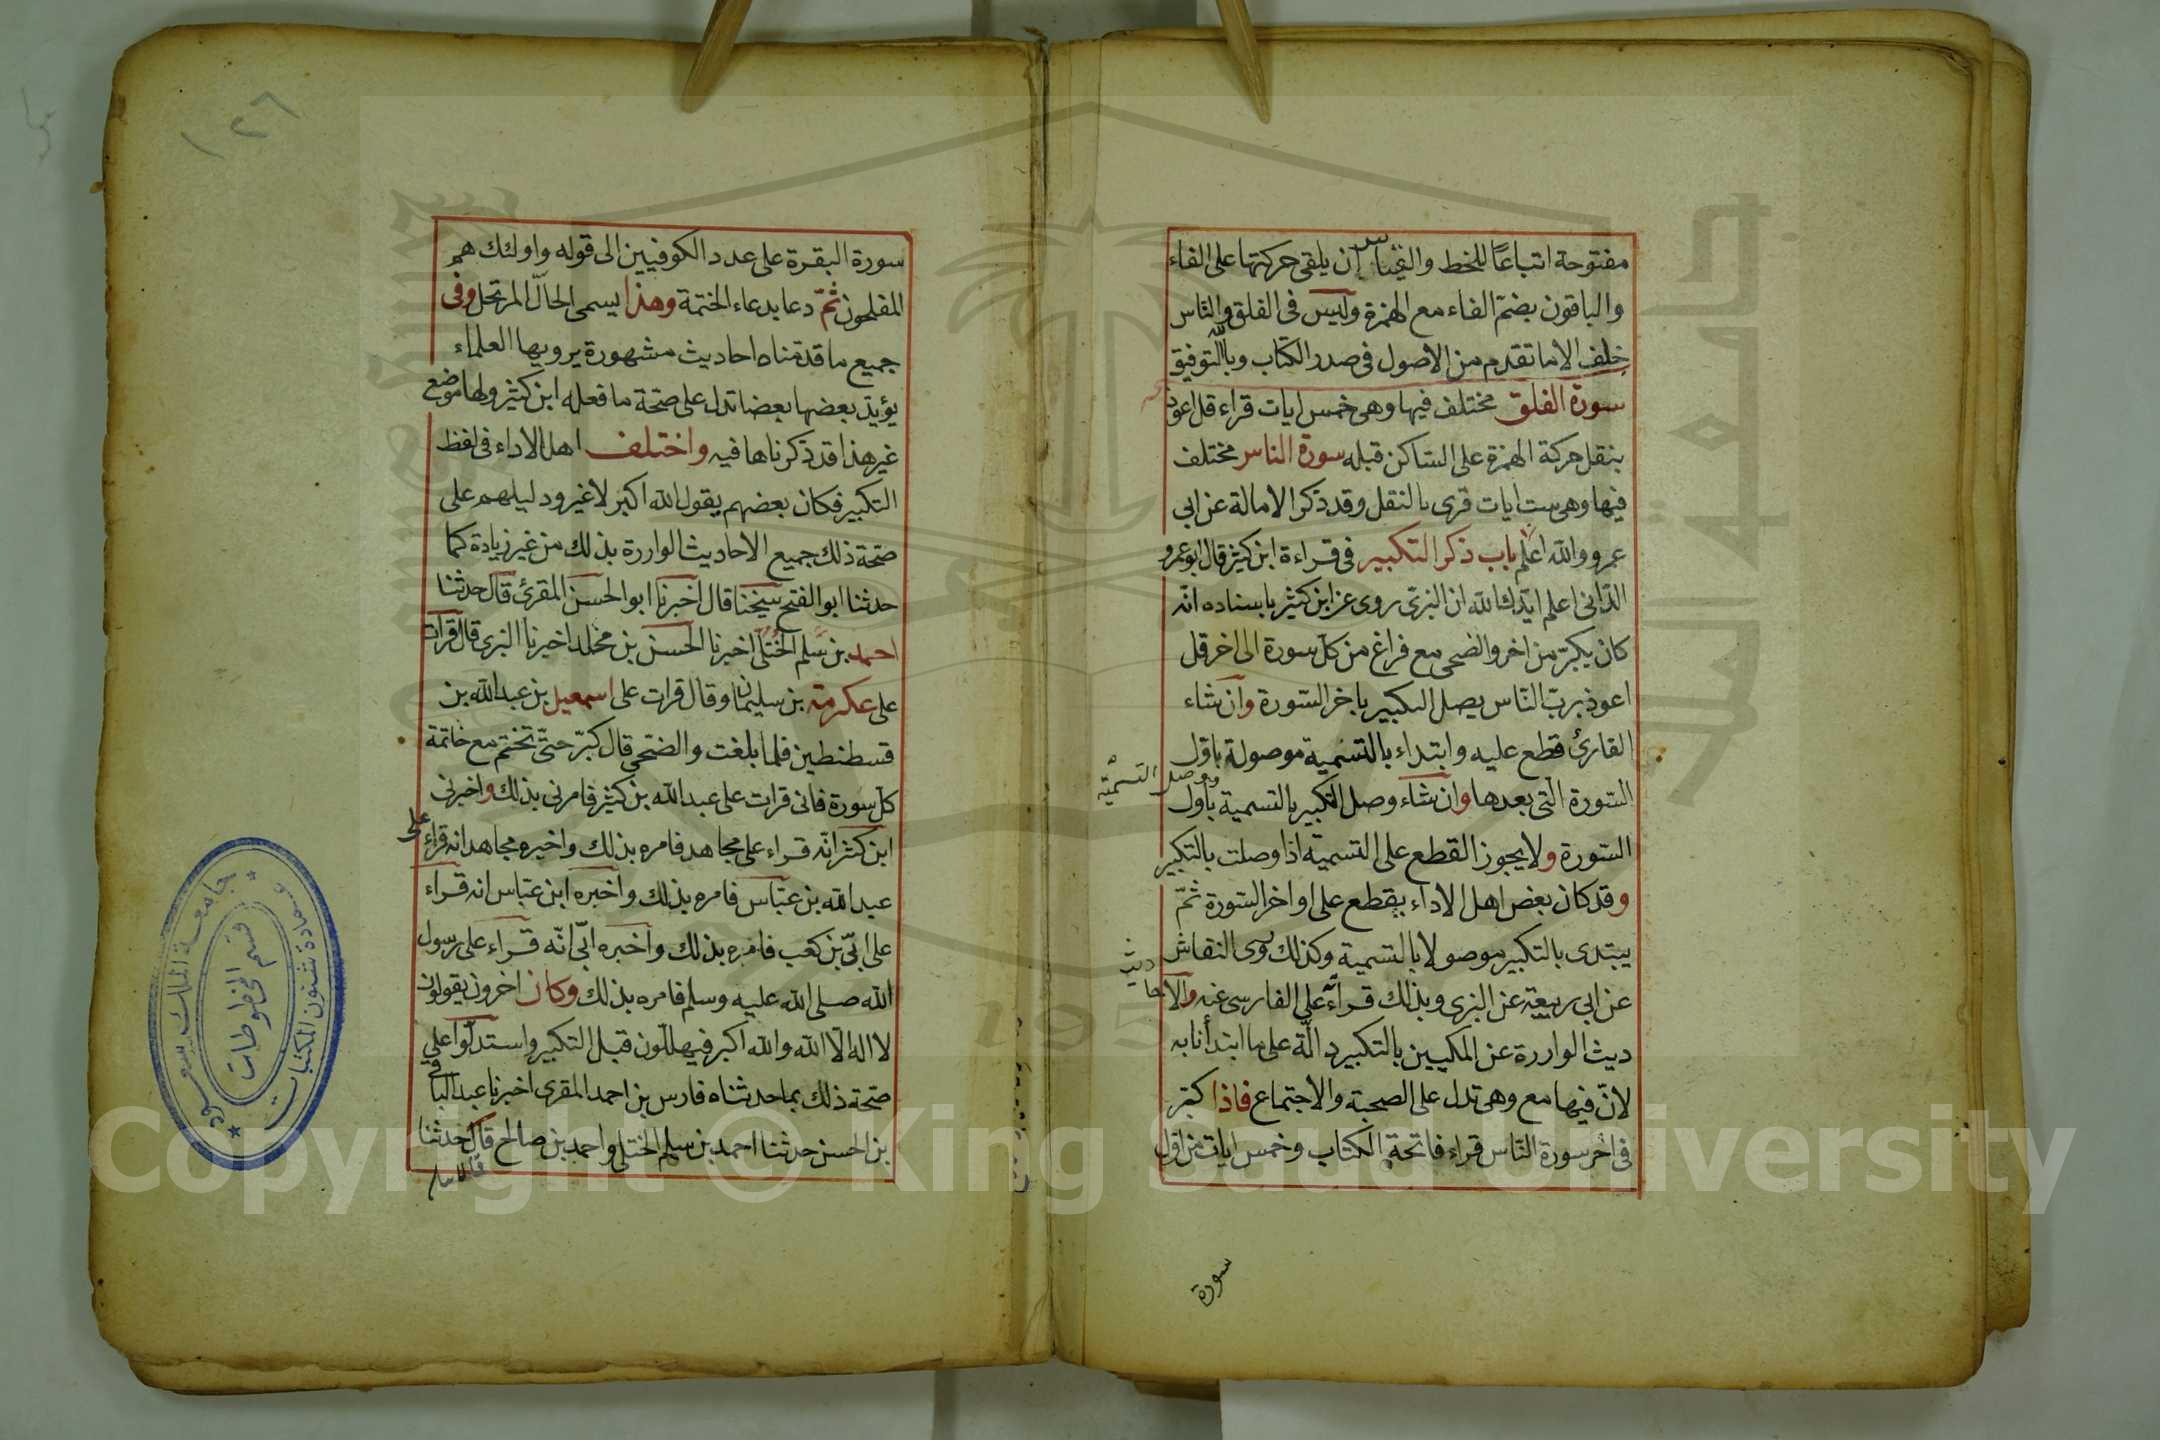 مفتوحة اتباعًا للخط والقياس ان يلقى حركتها على الفاء
والباقون بضم الفاء مع الهمزة وليس فى الفلق والناس
خلف الا ما تقدم من الاصول فى صدر الكتاب وبالله التوفيق
سورة الفلق مختلف فيها وهى خمس ايات قراء قل اعوذ
بنقل حركة الهمزة على الساكن قبله سورة الناس مختلف
فيها وهى ست ايات قرى بالنقل وقد ذكر الامالة عن ابى
عمرو والله اعلم باب ذكر التكبير فى قراءة ابن كثير قال ابو عمرو
الدّانى اعلم ايّدك الله ان البزىّ روى عن ابن كثير باسناده انّه
كان يكبّر من اخر والضحى مع فراغ من كل سورة الى اخر قل
اعوذ بربّ النّاس يصل التكبير باخر السّورة وان شاء
القارئ قطع عليه وابتداء بالتسمية موصولة باوّل
السّورة الّتى بعدها وان شاء وصل التكبير بالتسمية باول
ووصل التسميّة
السّورة ولا يجوز القطع على التسمية اذا وصلت بالتكبير
وقد كان بعض اهل الاداء يقطع على اواخر السّورة ثمّ
يبتدى بالتكبير موصولا بالتسمية وكذلك روى النقاش
عن ابى ربيعة عن البزى وبذلك قراءَ على الفارسى عنه والاحا
ديث الواردة عن المكيين بالتكبير دالّة على ما ابتدأنا به
لانّ فيها مع وهى تدل على الصحبة والاجتماع فاذا كبّر
فى اخر سورة النّاس قراء فاتحة الكتاب وخمس ايات من اوّل
سورة
١٢٦
سورة البقرة على عدد الكوفيين الى قوله واولئك هم
المفلحون ثمّ دعا بدعاء الختمة وهذا يسمى الحالّ المرتحل وفى
جميع ما قدّمناه احاديث مشهورة يرويها العلماء
يؤيّد بعضها بعضا تدل على صحّة ما فعله ابن كثير ولها موضع
غير هذا قد ذكرناها فيه واختلف اهل الاداء فى لفظ
التكبير فكان بعضهم يقول الله اكبر لا غير ودليلهم على
صحّة ذلك جميع الاحاديث الواردة بذلك من غير زيادة كما
حدثنا ابو الفتح شيخنا قال اخبرنا ابو الحسن المقرئ قال حدثنا
احمد بن سلم الختلى اخبرنا الحسن بن مخلد اخبرنا البزى قال قرات
على عكرمة بن سليمان وقال قرات على اسمعيل بن عبد الله بن
قسطنطين فلما بلغت والضّحى قال كبّر حتّى تختم مع خاتمة
كلّ سورة فانى قرات على عبد الله بن كثير فامرنى بذلك واخبرنى
ابن كثير انّه قراء على مجاهد فامره بذلك واخبره مجاهد انه قراء على
عبد الله بن عبّاس فامره بذلك واخبره ابن عبّاس انه قراء
على ابىّ بن كعب فامره بذلك واخبره ابىّ انّه قراء على رسول
الله صلى الله عليه وسلم فامره بذلك وكان اخرون يقولون
لا اله الّا الله والله اكبر فيهللّون قبل التكبير واستدلّوا على
صحّة ذلك بما حدثناه فارس بن احمد المقرى اخبرنا عبد الباقى
بن الحسن حدثنا احمد بن سلم الختلى واحمد بن صالح قال حدثنا
جامعة الملك سعود
وعمادة شئون المكتبات
قسم المخطوطات
Copyright © King Saud University